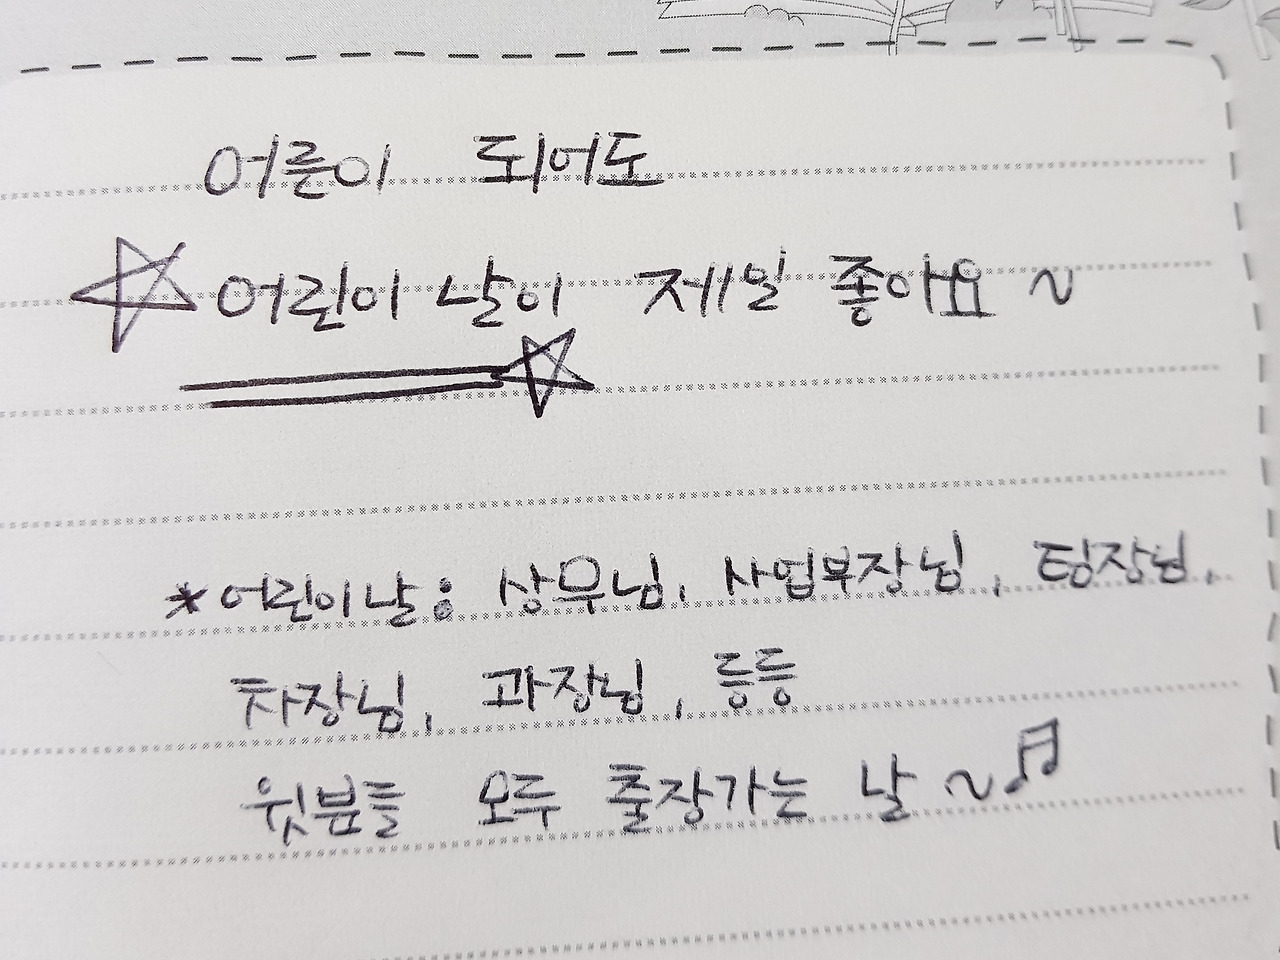 어른이 되어도
☆어린이 날이 제일 좋아요~
*어린이날: 상무님, 사업부장님, 팀장님,
차장님, 과장님, 등등
윗분들 모두 출장가는 날~♬